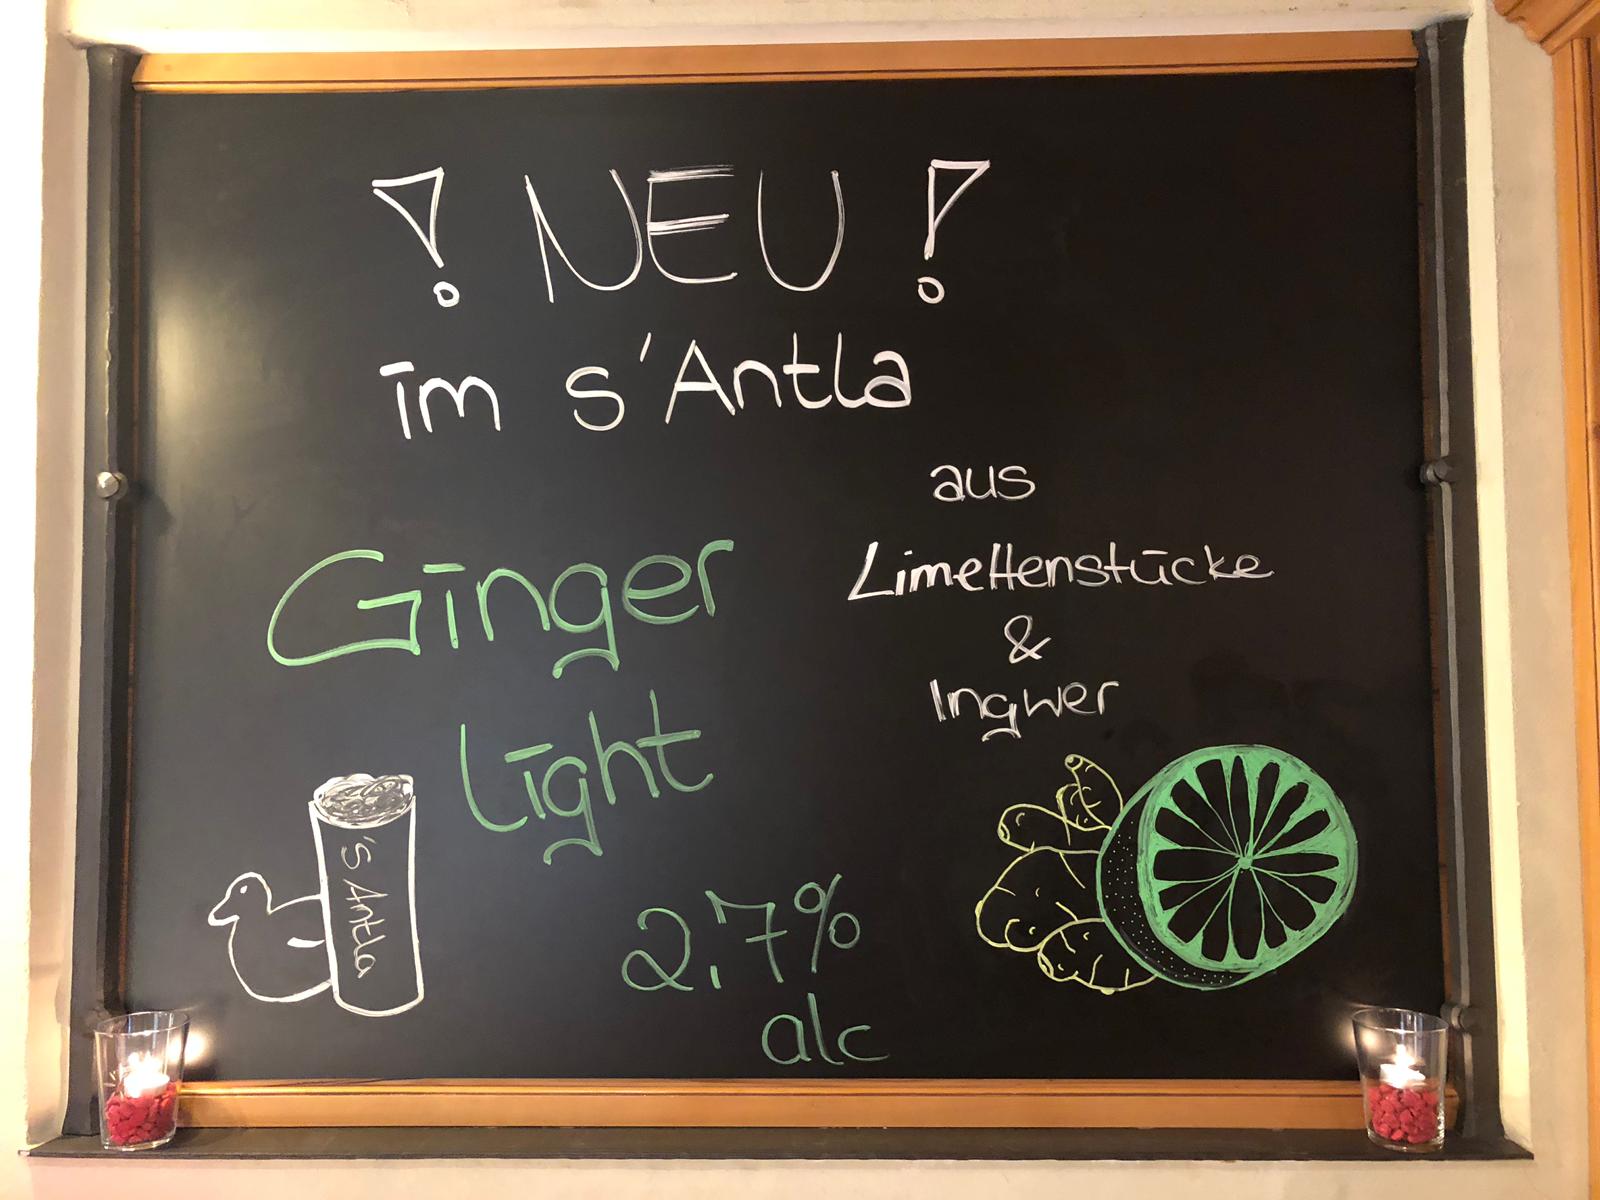 ! NEU !
im s'Antla
aus
Limettenstücke
&
Ingwer
Ginger
light
2,7%
alc
's Antla